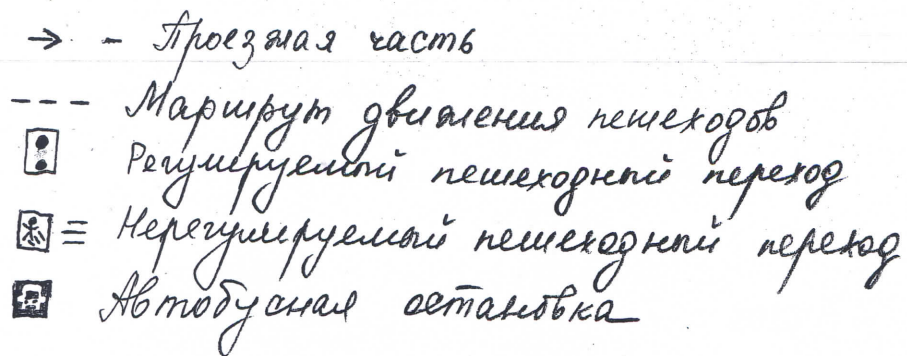 → - Проезжая часть
--- Маршрут движения пешеходов
Регулируемый пешеходный переход
Нерегулируемый пешеходный переход
Автобусная остановка